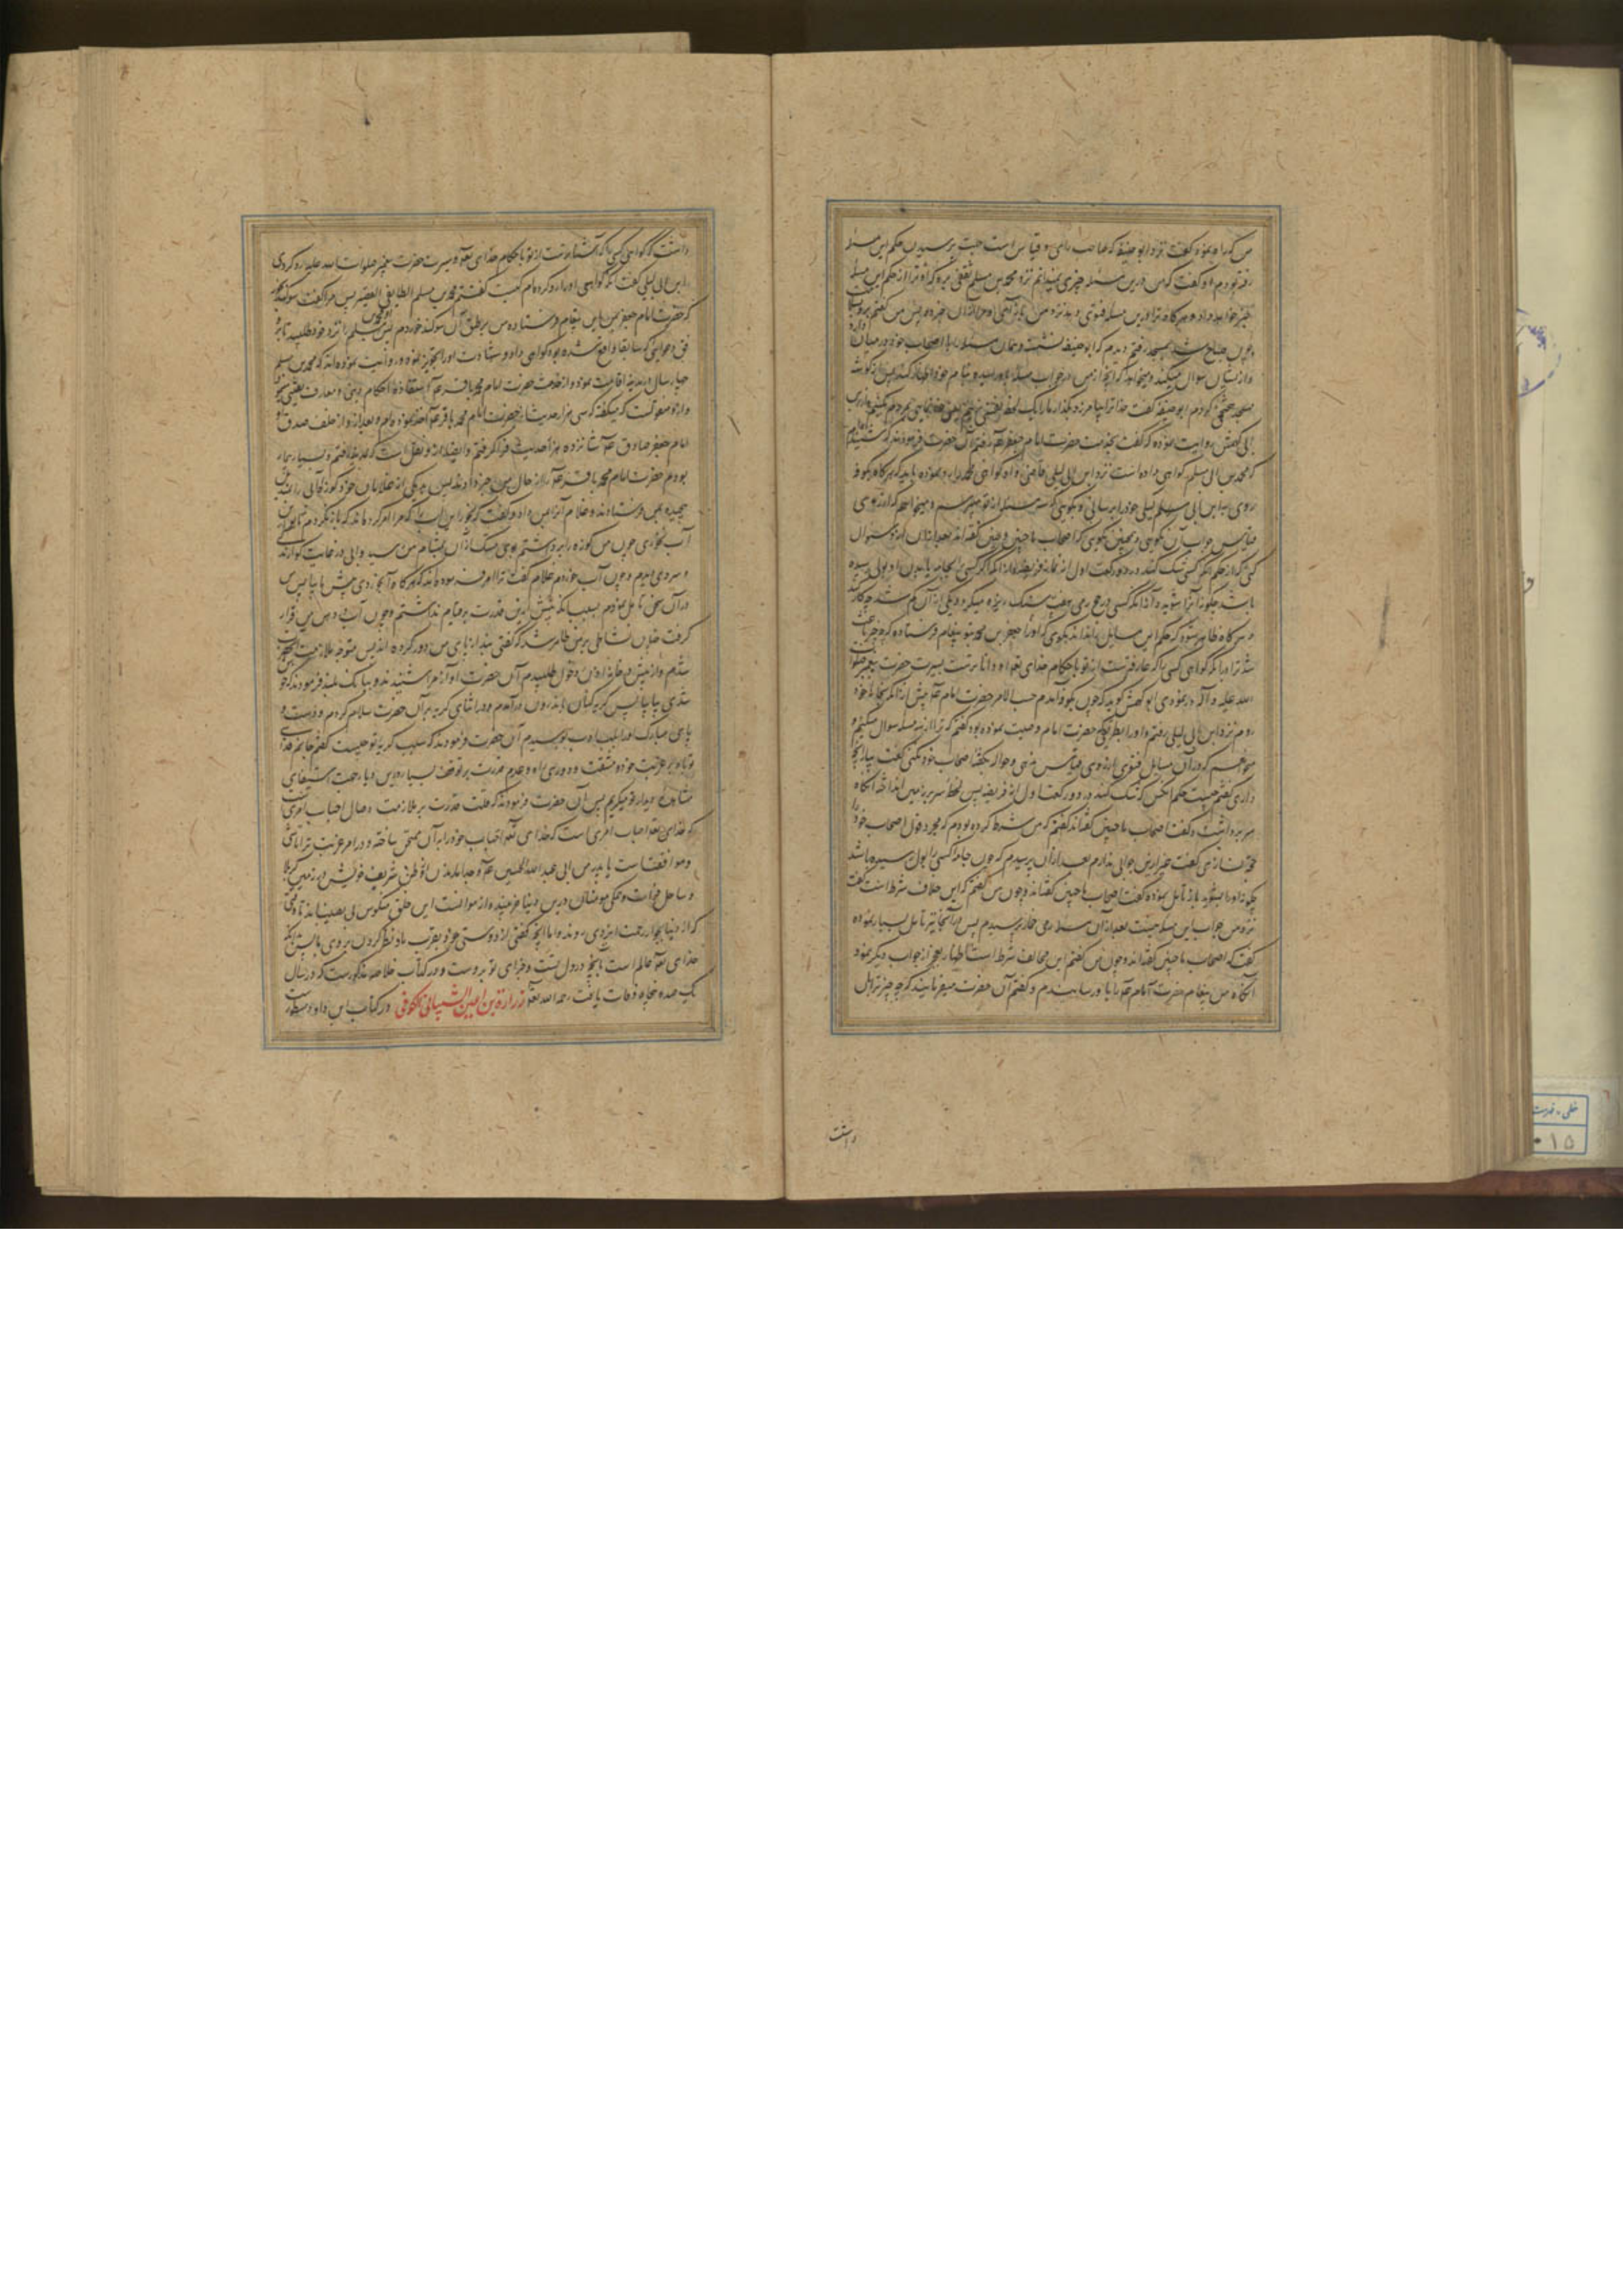 من کرد او نموده گفت نزد ابو حنیفه که صاحب رای و قیاس است جهت پرسیدن حکم این مسئله
رفته بودم او گفت که من درین مسئله چیزی نمیدانم نزد محمد بن مسلم ثقفی برو که او ترا از حکم این مسئله
خبر خواهد داد و هرگاه ترا درین مسئله فتوی دهد نزد من باز آی و مرا از آن خبر ده پس من گفتم برو بسلامت
و چون صباح شد بمسجد رفتم دیدم که ابو حنیفه نشسته و همان مسئله را با اصحاب خود در میان دارد
و از ایشان سوال میکند و میخواهد که آنچه از من در جواب مسئله باو رسیده بنام خود اظهار کند پس از گوشه
مسجد کردم ابو حنیفه گفت خدا ترا بیامرزد بگذار ما را یک لحظه
ابی کهمش روایت نموده که گفت بخدمت حضرت امام جعفر عم رفتم آن حضرت فرمودند که شنیده‌ام
که محمد بن مسلم گواهی داده است نزد ابن ابی لیلی قاضی و او گواهی محمد را رد نموده باید که هرگاه بکوفه
روی ابن ابی لیلی خود را برسانی و بگویی که سه مسئله از تو میپرسم و میخواهم که از روی
قیاس جواب آن نگویی و همچنین نگویی که اصحاب ما چنین و چنین گفته‌اند بعد از آن ازو سوال
کنی که از حکم آنکه کسی شک کند در دو رکعت اول از نماز فریضه و از آنکه اگر کسی را جامه یا بدن او بولی رسیده
باشد چگونه آنرا شوید و از آنکه کسی در حج رمی هفت سنگ ریزه میکرد و یکی از آن گم شد چه کار کند
و هرگاه ظاهر شود که حکم این مسایل را نداند بگوی که او را جعفر بن محمد بتو پیغام فرستاده که چه چیز باعث
شد ترا در آنکه گواهی کسی را که عارفترست از تو باحکام خدای تعم و داناترست بسیرت حضرت پیغمبر صلوات
الله علیه و آله رد نمودی ابو کهمش گوید که چون بکوفه آمدم حسب الامر حضرت امام عم پیش از آنکه بخانه خود
روم نزد ابن ابی لیلی رفتم و او را بطریقی که حضرت امام وصیت نموده بود گفتم که ترا از سه مسئله سوال میکنم و
میخواهم که در آن مسایل فتوی از روی قیاس ندهی و حواله بگفته اصحاب خود نکنی گفت بیار آنچه
داری گفتم چیست حکم آنکس که شک کند در دو رکعت اول از فریضه پس لحظه سر بزیر انداخته آنگاه
سر برداشت و گفت اصحاب ما چنین گفته‌اند گفتم که من شرط کرده بودم که مجرد قول اصحاب خود را
گفت غیر ازین جوابی ندارم بعد از آن پرسیدم که چون جامه کسی را بول رسیده باشد
چگونه او را بشوید باز تأمل نموده گفت اصحاب ما چنین گفته‌اند و چون من گفتم که این خلاف شرط است گفت
نزد من جواب این مسئله همینست بعد از آن مسئله رمی جمار پرسیدم پس در آنجا نیز تأمل بسیار نموده
گفت که اصحاب ما چنین گفته‌اند و چون من گفتم این مخالف شرط است اظهار عجز از جواب دیگر نمود
آنگاه من پیغام حضرت امام عم را باو رسانیدم و گفتم آن حضرت میفرمایند که چه چیز ترا بران
داشت
داشت که گواهی کسی را که آشناترست از تو باحکام خدای تعم و سیرت حضرت پیغمبر صلوات الله علیه رد کردی
ابن ابی لیلی گفت آنکه گواهی او را رد کرده‌ام کیست گفتم محمد بن مسلم الطایفی القصیر پس مرا گفت سوگند بخور
که حضرت امام جعفر این پیغام فرستاده من بر طبق آن سوگند خوردم پس محمد بن مسلم را نزد خود طلبید تا بر
که سابقا واقع شده بود گواهی داد و شهادت او را تجویز نمود و روایت نموده‌اند که محمد بن مسلم
چهار سال در مدینه اقامت نمود و از خدمت حضرت امام محمد باقر عم استفاده احکام دینی و معارف یقینی مینمود
و ازو منقولست که میگفته که سی هزار حدیث از حضرت امام محمد باقر عم اخذ نموده‌ام و بعد ازو از خلف صدق او
امام جعفر صادق عم شانزده هزار حدیث فرا گرفتم و ایضا ازو نقل است که بمدینه رفتم و بسیار بیمار
بودم حضرت امام محمد باقر عم را از حال من خبر دادند پس بیکی از غلامان خود کوزه آبی
پیچیده بمن فرستادند و غلام آنرا بمن داد و گفت که بخور این آب را که مرا امر کرده‌اند که باز نگردم تا تو این
آب بخوری چون من کوزه را برداشتم بوی مشک از آن بمشام من رسید و آبی در غایت گوارندگی
و سردی دیدم و چون آب خوردم غلام گفت ترا امر فرموده‌اند که هرگاه آب خوردی پیش ما بیا پس من
در آن سخن تأمل نمودم بسبب آنکه پیش ازین قدرت بر قیام نداشتم و چون آب در من قرار
گرفت چنان نشاطی بر من ظاهر شد که گفتی بند از پای من دور کرده‌اند پس متوجه ملازمت آنحضرت
شدم و از پیش در خانه اذن دخول طلبیدم آن حضرت آواز مرا شنیدند و ببانک بلند فرمودند که خوب
شدی بیا بیا پس گریه کنان اندرون درآمدم و در اثنای گریه بر آن حضرت سلام کردم و دست و
پای مبارک او را بلب ادب بوسیدم آن حضرت فرمودند که سبب گریه تو چیست گفتم جانم فدای
تو باد بر غربت خود و مشقت و دوری راه و عدم قدرت بر توقف بسیار درین دیار جهت استیفای
مشاهده دیدار تو میگریم پس آن حضرت فرمودند که قلت قدرت بر ملازمت و وصال احباب امریست
که خدای تعم احباب خود را بآن ممتحن ساخته و در امر غربت ترا تأسی
و موافقت است با پدر من ابی عبد الله الحسین عم از وطن شریف خویش در زمین کربلا
و ساحل فرات و جملگی مومنان درین دنیا غریبند و از موانست این خلق منکوس بی نصیب‌اند تا وقتی
که از دنیا بجوار رحمت ایزدی روند و اما آنچه گفتی از دوستی قرب ما و نظر کردن بروی ما پس آنکه
خدای تعم عالم است بآنچه در دل تست و جزای تو بروست و در کتاب خلاصه مذکورست که در سال
یک صد و پنجاه وفات یافت رحمه الله تعم زرارة بن اعین الشیبانی الکوفی در کتاب ابن داود مسطورست